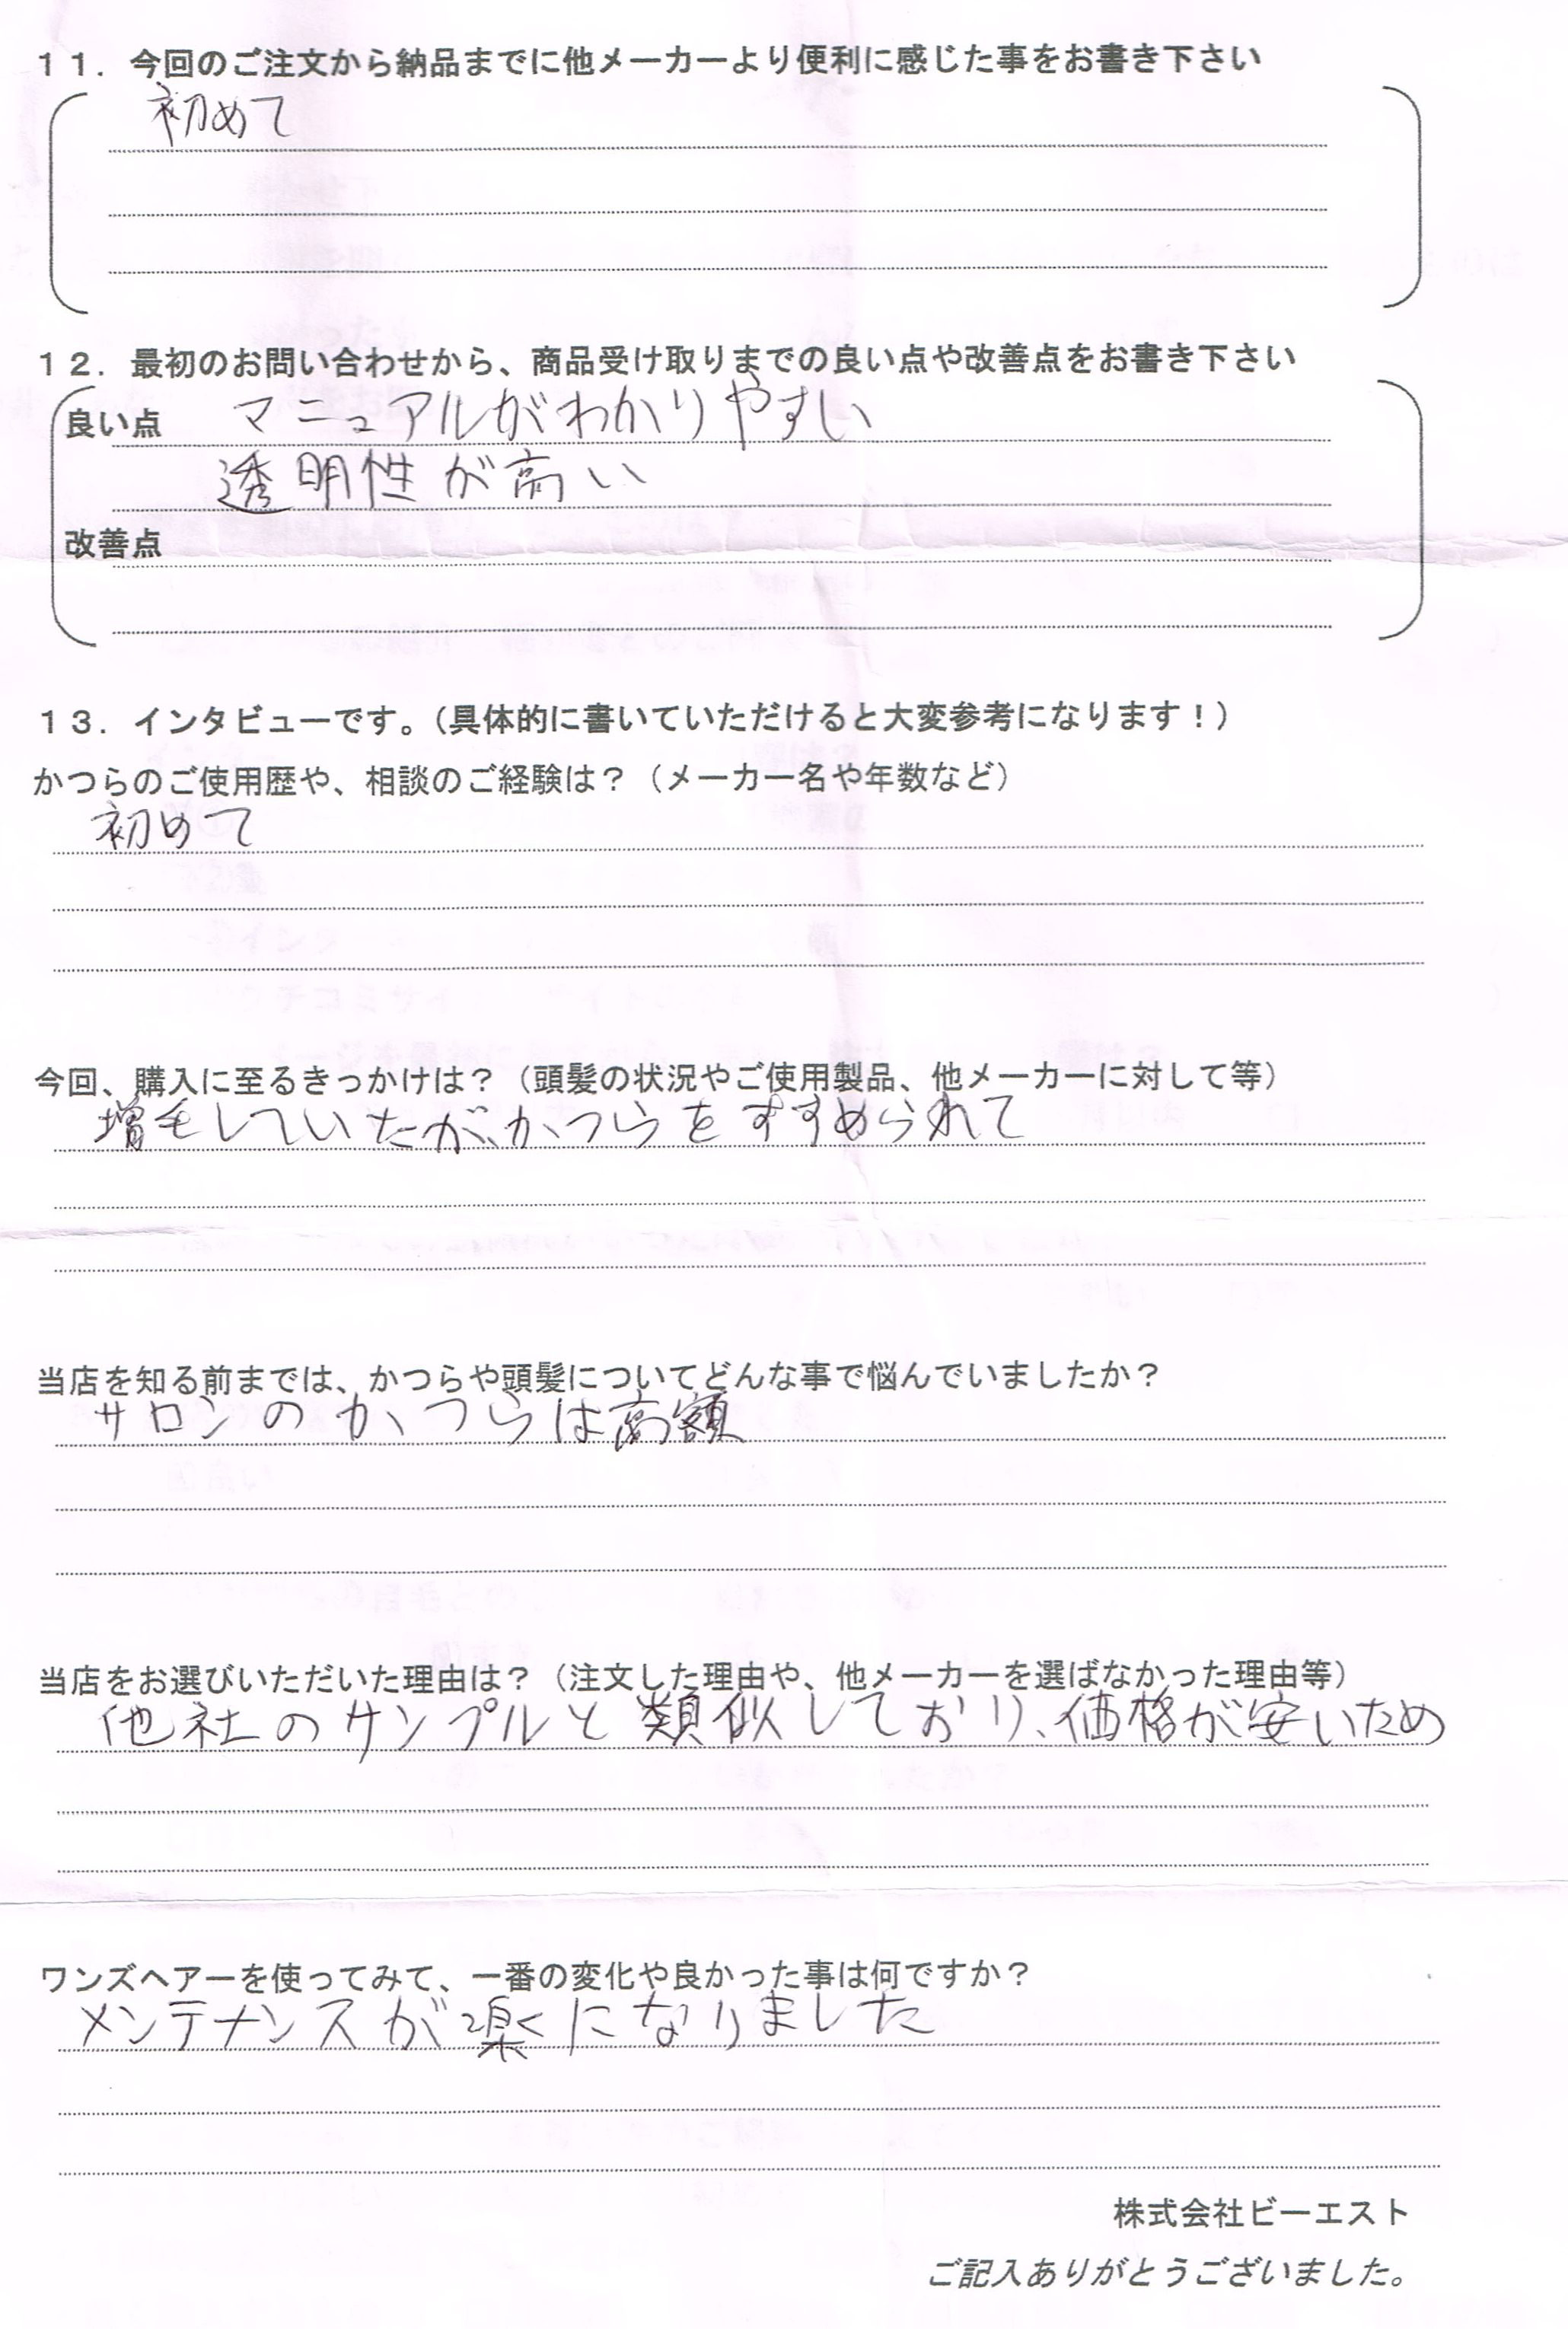 11．今回のご注文から納品までに他メーカーより便利に感じた事をお書き下さい
初めて
12．最初のお問い合わせから、商品受け取りまでの良い点や改善点をお書き下さい
良い点 マニュアルがわかりやすい
透明性が高い
改善点
13．インタビューです。（具体的に書いていただけると大変参考になります！）
かつらのご使用歴や、相談のご経験は？（メーカー名や年数など）
初めて
今回、購入に至るきっかけは？（頭髪の状況やご使用製品、他メーカーに対して等）
増毛していたが、かつらをすすめられて
当店を知る前までは、かつらや頭髪についてどんな事で悩んでいましたか？
サロンのかつらは高額
当店をお選びいただいた理由は？（注文した理由や、他メーカーを選ばなかった理由等）
他社のサンプルと類似しており、価格が安いため
ワンズヘアーを使ってみて、一番の変化や良かった事は何ですか？
メンテナンスが楽になりました
株式会社ビーエスト
ご記入ありがとうございました。